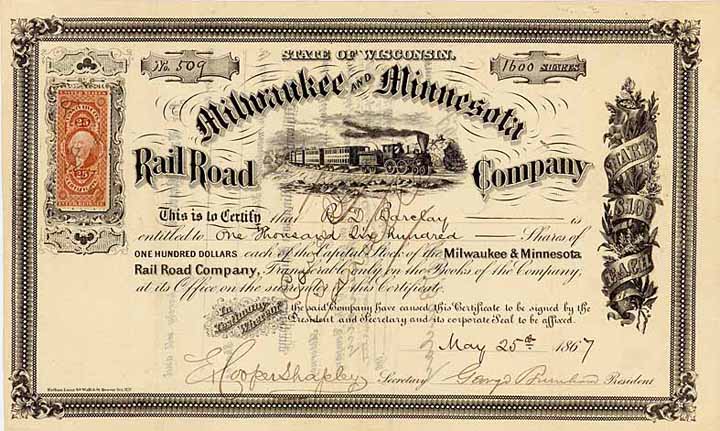 STATE OF WISCONSIN.
No. 509
1600 SHARES
Milwaukee AND Minnesota
Rail Road Company
25
25
This is to Certify that R. D. Barclay is
entitled to One Thousand Six Hundred Shares of
ONE HUNDRED DOLLARS each of the Capital Stock of the Milwaukee & Minnesota
Rail Road Company, Transferable only on the Books of the Company,
at its Office on the surrender of this Certificate.
In Testimony Whereof the said Company have caused this Certificate to be signed by the
President and Secretary and its corporate Seal to be affixed.
May 25th 1867
E. Cooper Shapley Secretary George Burnham President
SHARES
$100
EACH